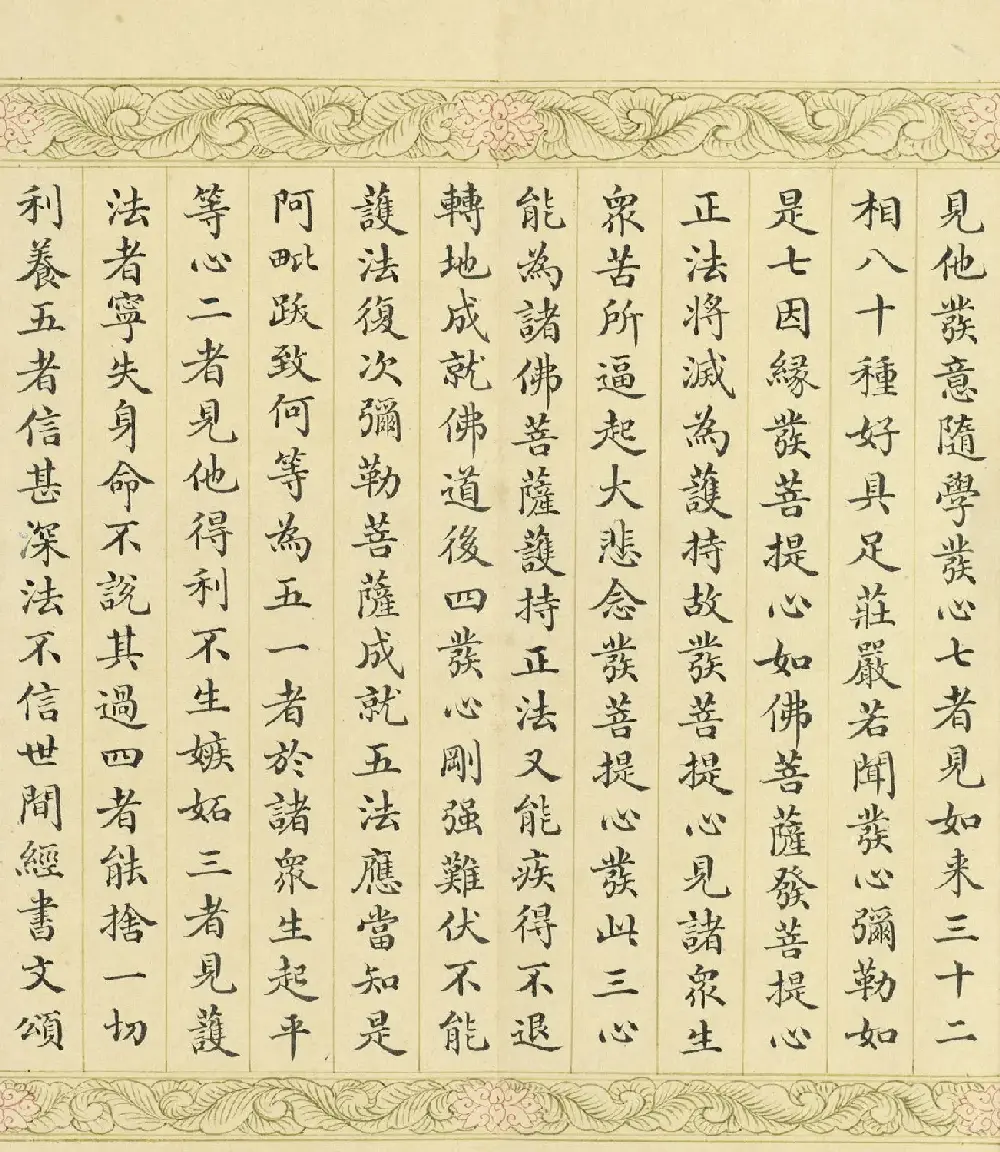 見他發意隨學發心七者見如来三十二
相八十種好具足莊嚴若聞發心彌勒如
是七因緣發菩提心如佛菩薩發菩提心
正法將滅為護持故發菩提心見諸衆生
衆苦所逼起大悲念發菩提心發此三心
能為諸佛菩薩護持正法又能疾得不退
轉地成就佛道後四發心剛强難伏不能
護法復次彌勒菩薩成就五法應當知是
阿毗跋致何等為五一者於諸衆生起平
等心二者見他得利不生嫉妬三者見護
法者寧失身命不說其過四者能捨一切
利養五者信甚深法不信世間經書文頌